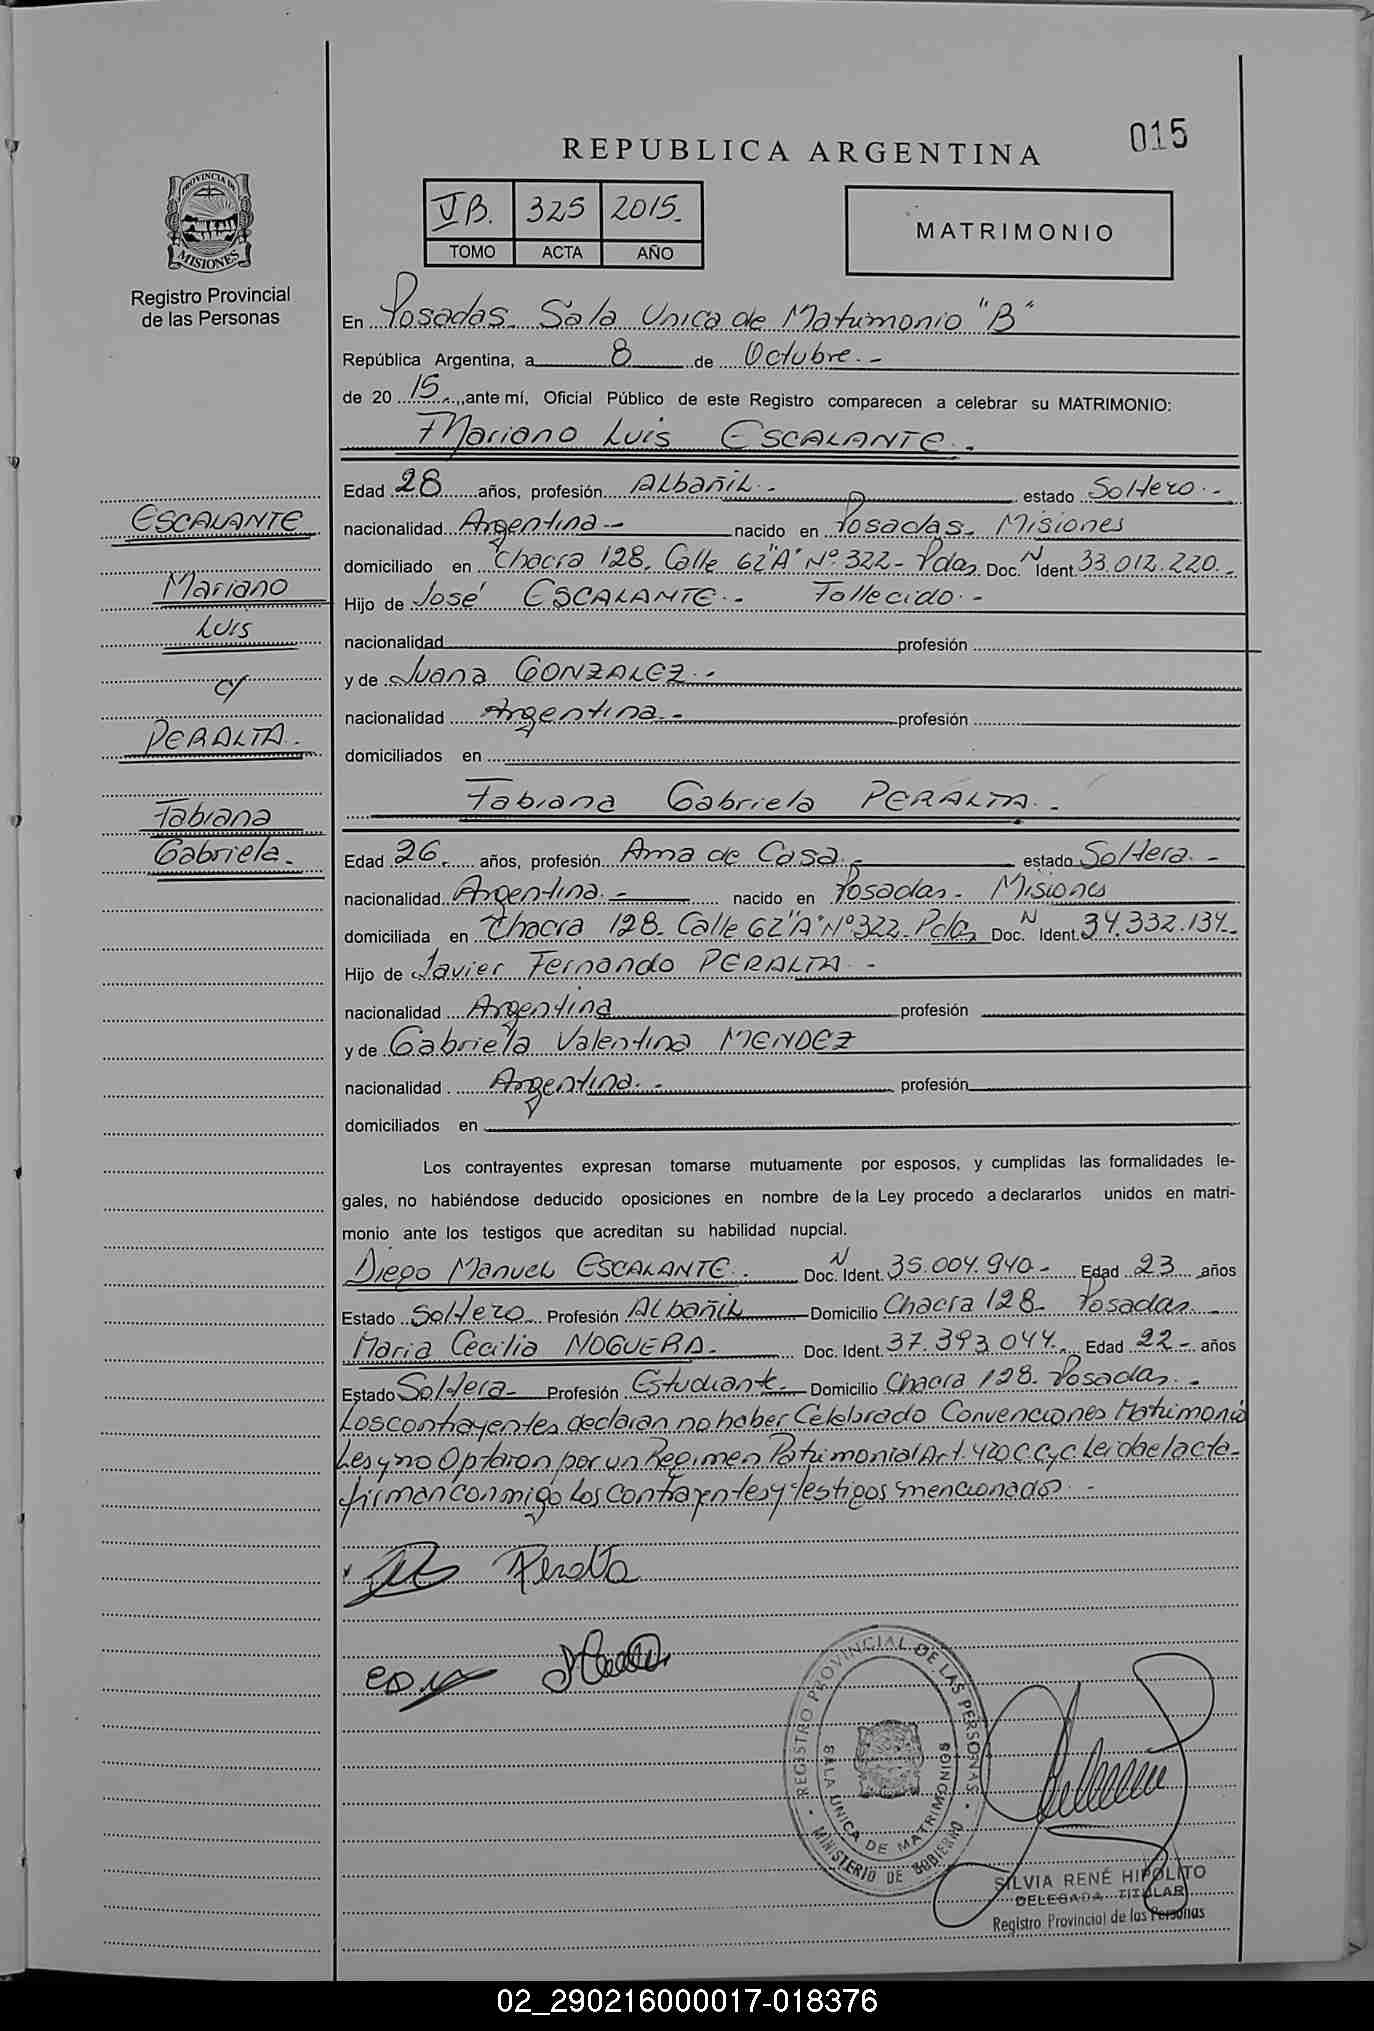 015
REPUBLICA ARGENTINA
PROVINCIA DE
MISIONES
Registro Provincial
de las Personas
VB. 325 2015.
TOMO ACTA AÑO
MATRIMONIO
En Posadas. Sala Unica de Matrimonio "B"
República Argentina, a 8 de Octubre.-
de 2015., ante mí, Oficial Público de este Registro comparecen a celebrar su MATRIMONIO:
Mariano Luis ESCALANTE.-
Edad 28 años, profesión Albañil.- estado Soltero.-
nacionalidad Argentina.- nacido en Posadas. Misiones
domiciliado en Chacra 128. Calle 62"A" Nº 322- Pdas. Doc. N Ident. 33.012.220.-
Hijo de José ESCALANTE.- Fallecido.-
nacionalidad profesión
y de Juana GONZALEZ.-
nacionalidad Argentina.- profesión
domiciliados en
Fabiana Gabriela PERALTA.-
Edad 26. años, profesión Ama de Casa.- estado Soltera.-
nacionalidad Argentina.- nacido en Posadas- Misiones
domiciliada en Chacra 128. Calle 62"A" Nº 322- Pdas Doc. N Ident. 34.332.134.-
Hijo de Javier Fernando PERALTA.-
nacionalidad Argentina profesión
y de Gabriela Valentina MENDEZ
nacionalidad Argentina.- profesión
domiciliados en
Los contrayentes expresan tomarse mutuamente por esposos, y cumplidas las formalidades le-
gales, no habiéndose deducido oposiciones en nombre de la Ley procedo a declararlos unidos en matri-
monio ante los testigos que acreditan su habilidad nupcial.
Diego Manuel ESCALANTE.- Doc. N Ident. 35.004.940.- Edad 23 años
Estado Soltero Profesión Albañil Domicilio Chacra 128- Posadas.-
Maria Cecilia NOGUERA.- Doc. Ident. 37.393.044.- Edad 22- años
Estado Soltera- Profesión Estudiante- Domicilio Chacra 128- Posadas.-
Los contrayentes declaran no haber Celebrado Convenciones Matrimonia
les y no Optaron por un Regimen Patrimonial Art. 420 C.C y C. Leida el acta-
firman conmigo los contrayentes y testigos mencionados.-
Peralta
REGISTRO PROVINCIAL DE LAS PERSONAS
SALA UNICA DE MATRIMONIOS
MINISTERIO DE GOBIERNO
SILVIA RENÉ HIPÓLITO
DELEGADA TITULAR
Registro Provincial de las Personas
ESCALANTE
Mariano
Luis
c/
PERALTA.
Fabiana
Gabriela.
02_290216000017-018376